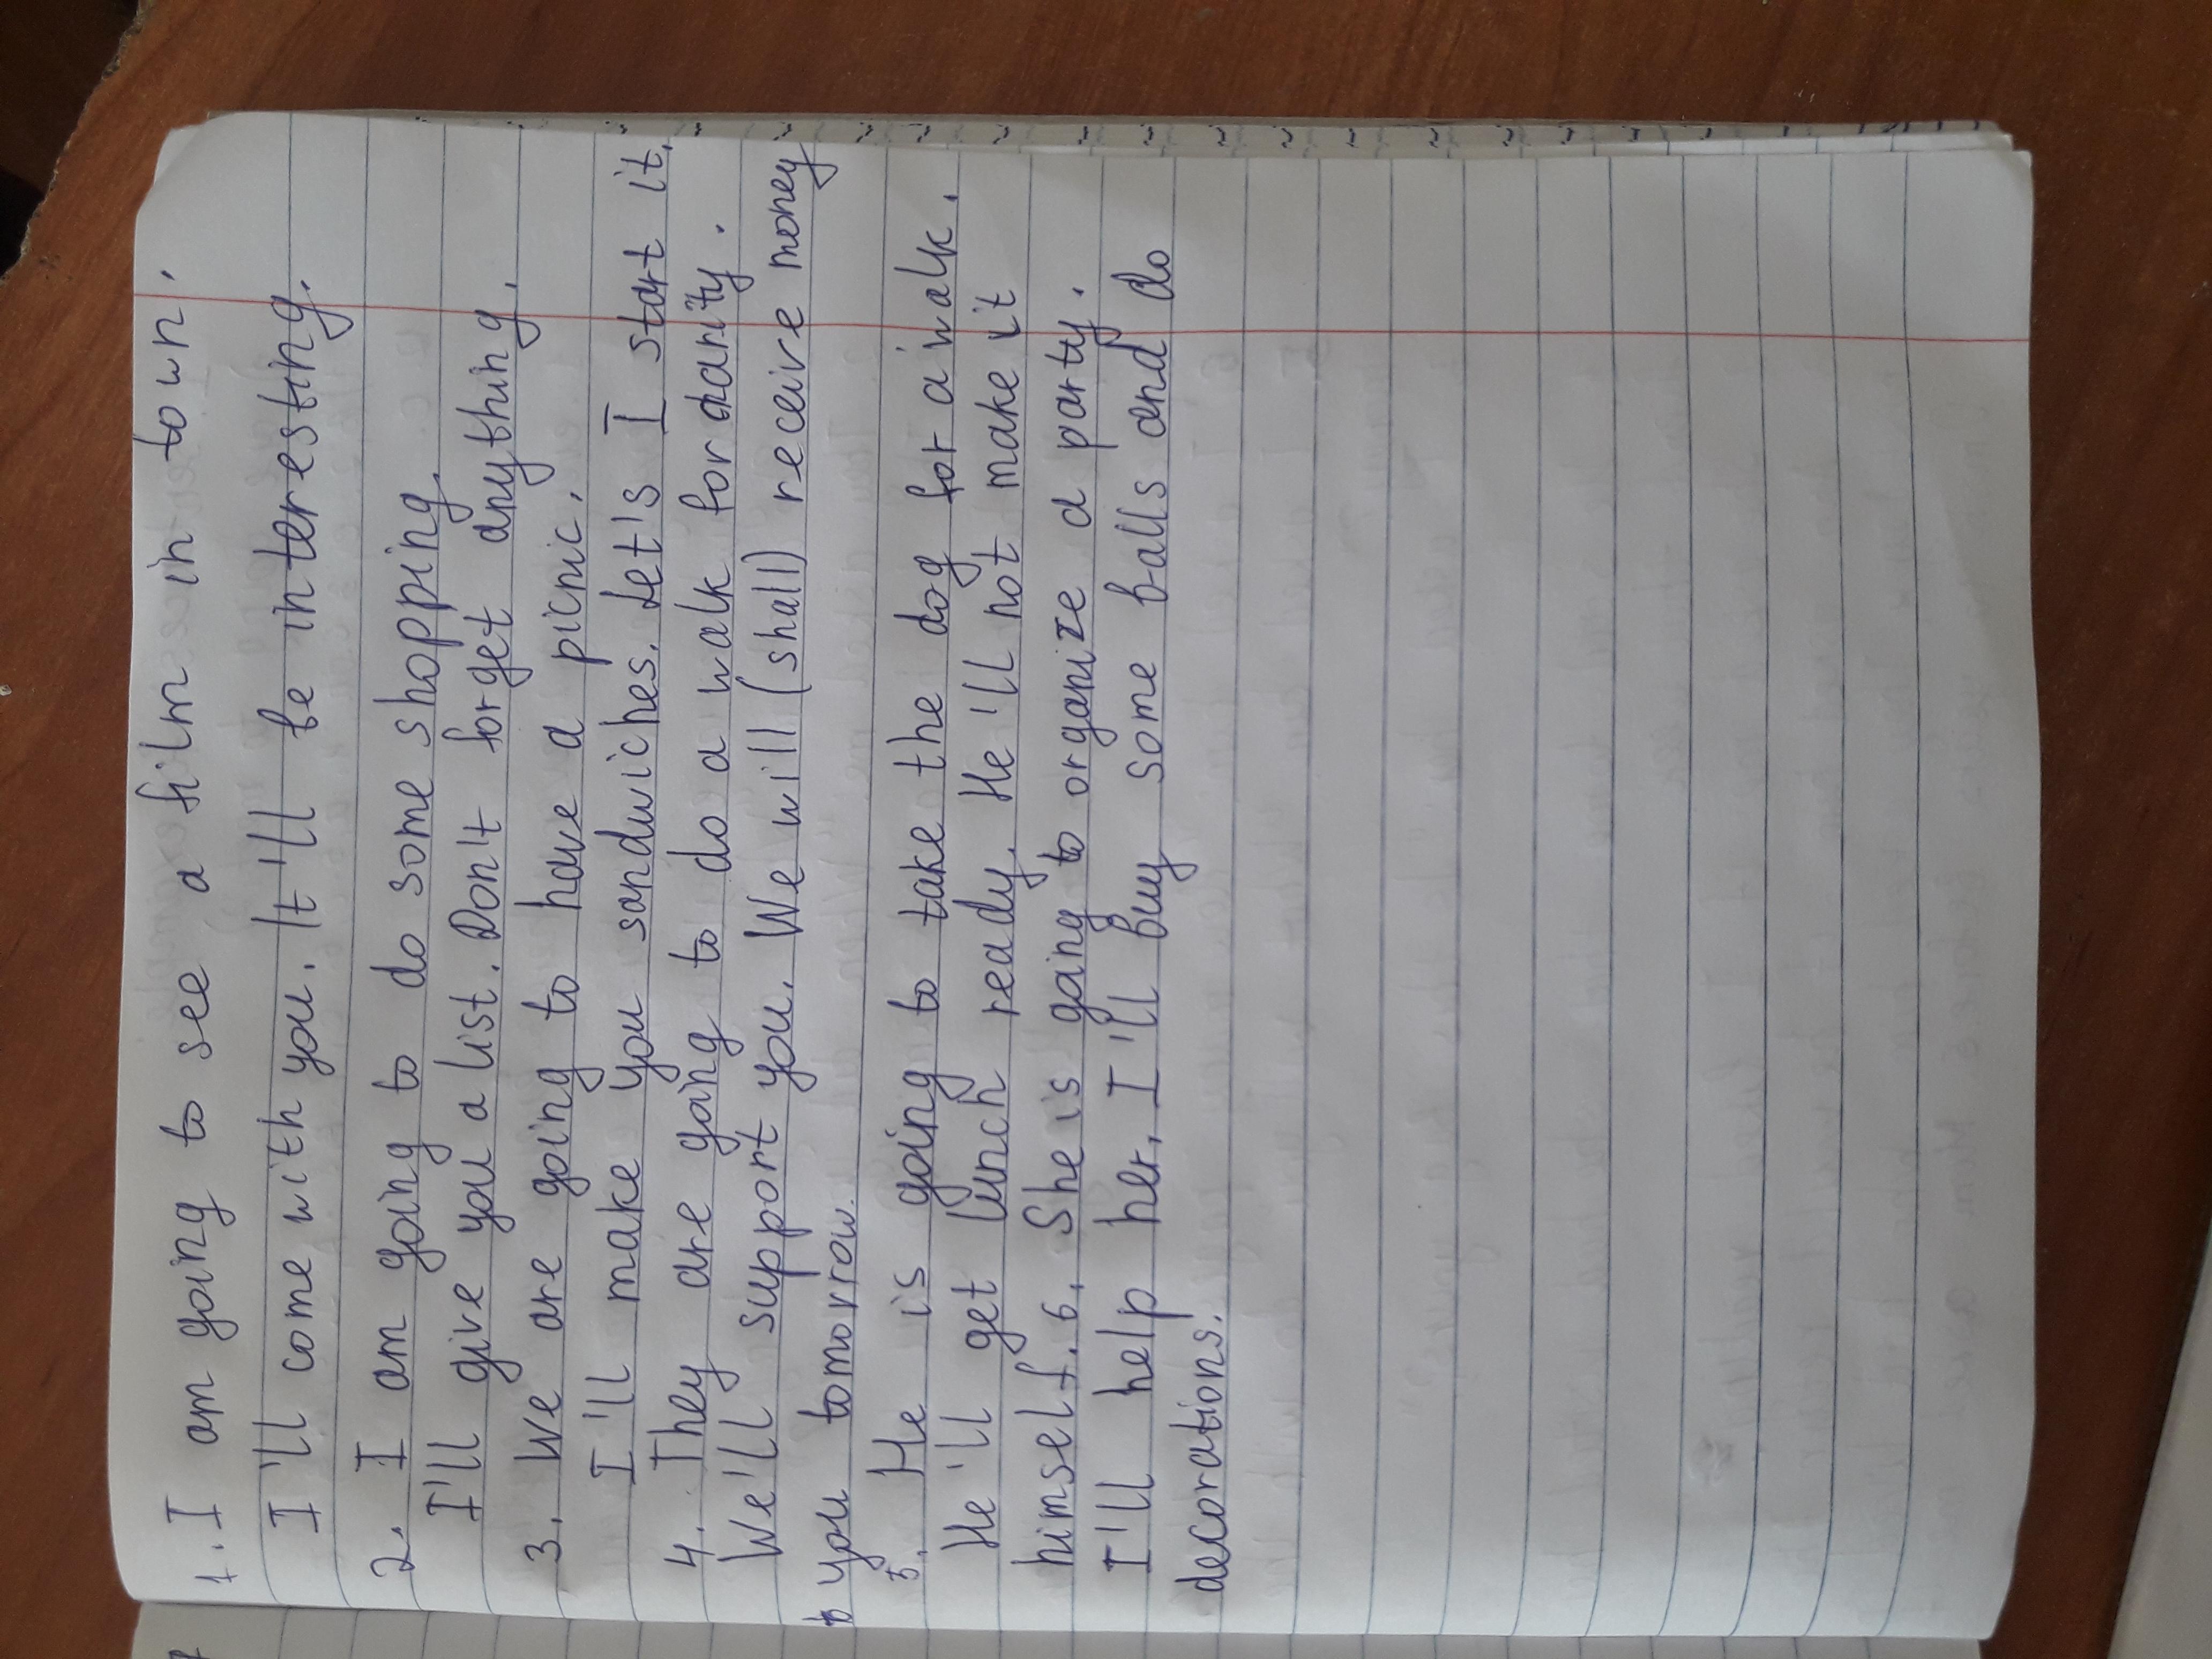 1. I am going to see a film in town.
I'll come with you. It'll be interesting.
2. I am going to do some shopping.
I'll give you a list. Don't forget anything.
3. We are going to have a picnic.
I'll make you sandwiches. Let's I start it.
4. They are going to do a walk for charity.
We'll support you. We will (shall) receive money
to you tomorrow.
5. He is going to take the dog for a walk.
He'll get lunch ready. He'll not make it
himself. 6. She is going to organize a party.
I'll help her. I'll buy some balls and do
decorations.